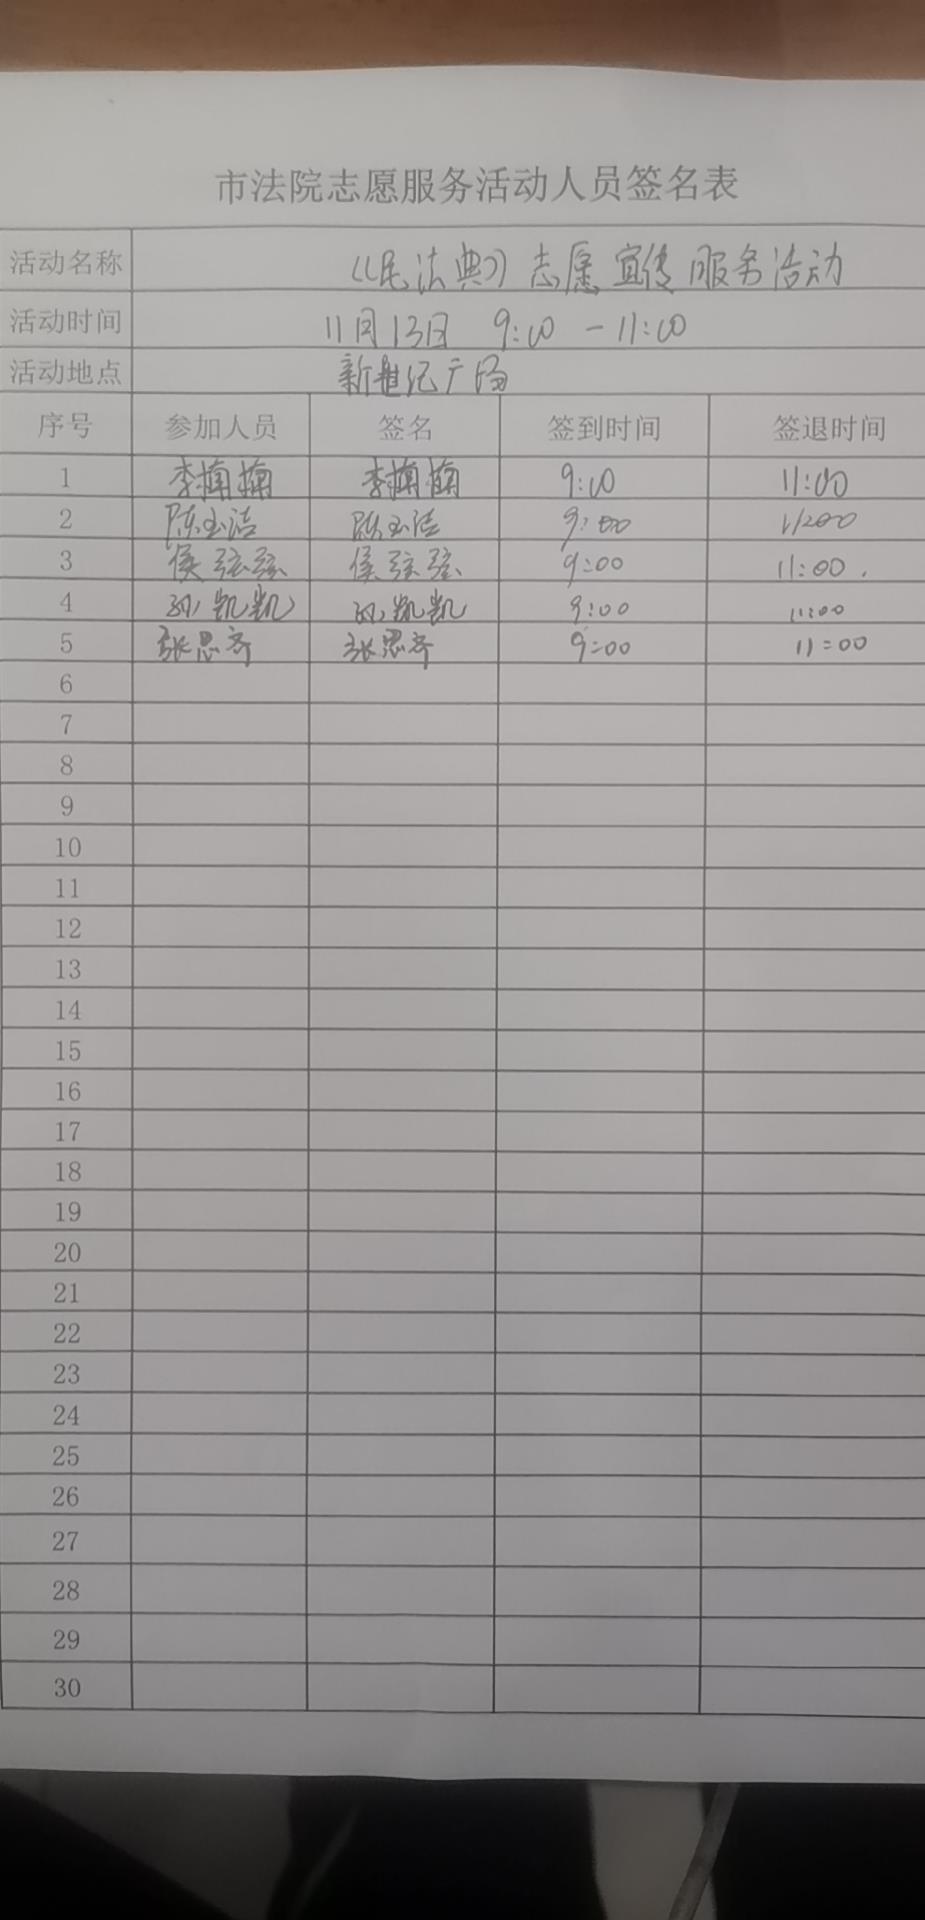 市法院志愿服务活动人员签名表
活动名称 《民法典》志愿宣传服务活动
活动时间 11月13日 9:00 - 11:00
活动地点 新世纪广场
序号 参加人员 签名 签到时间 签退时间
1 李楠楠 李楠楠 9:00 11:00
2 陈玉洁 陈玉洁 9:00 11:00
3 侯弦弦 侯弦弦 9:00 11:00.
4 孙凯凯 孙凯凯 9:00 11:00
5 张思齐 张思齐 9:00 11:00
6
7
8
9
10
11
12
13
14
15
16
17
18
19
20
21
22
23
24
25
26
27
28
29
30